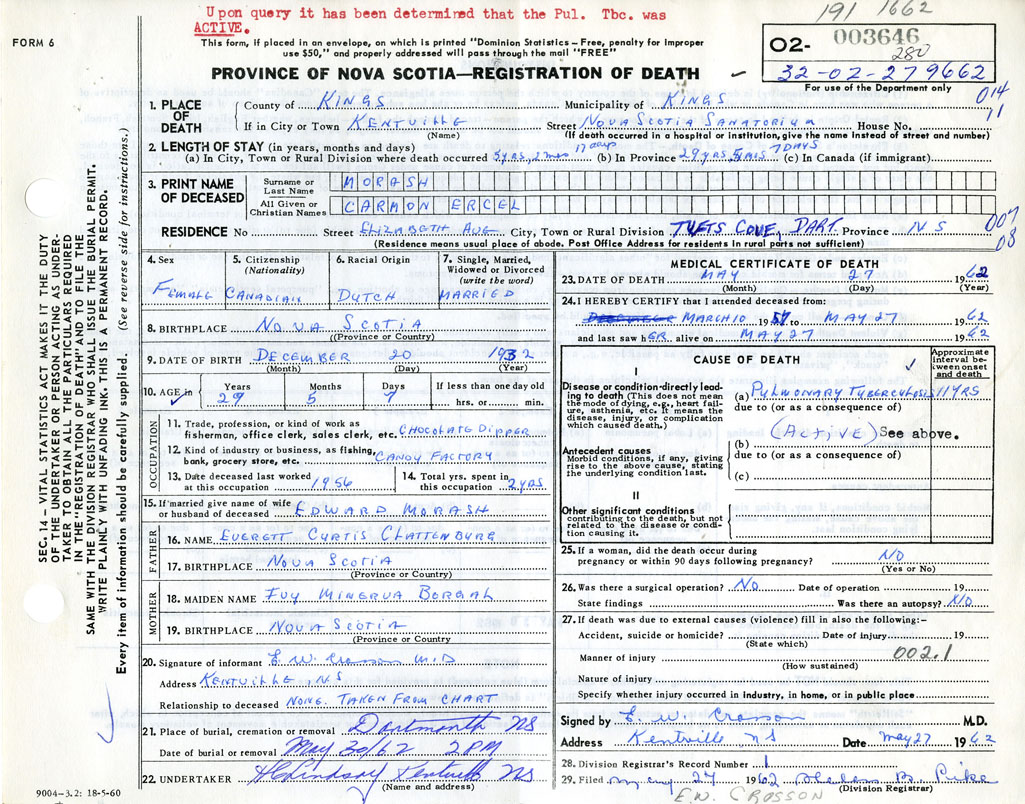 Upon query it has been determined that the Pul. Tbc. was
ACTIVE.
191 1662
FORM 6
This form, if placed in an envelope, on which is printed "Dominion Statistics – Free, penalty for Improper
use $50," and properly addressed will pass through the mail "FREE"
O2- 003646
280
32-02-279662
For use of the Department only
PROVINCE OF NOVA SCOTIA—REGISTRATION OF DEATH
014
11
1. PLACE OF DEATH
County of KINGS Municipality of KINGS
If in City or Town KENTVILLE Street NOVA SCOTIA SANATORIUM House No.
(Name) (If death occurred in a hospital or institution, give the name instead of street and number)
2. LENGTH OF STAY (in years, months and days)
(a) In City, Town or Rural Division where death occurred 5 yrs, 2 mos 17 days (b) In Province 29 yrs 5 mos 7 DAYS (c) In Canada (if immigrant)
3. PRINT NAME OF DECEASED
Surname or Last Name MORASH
All Given or Christian Names CARMON ERCEL
RESIDENCE No Street ELIZABETH AVE City, Town or Rural Division TUFTS COVE, DART. Province NS
(Residence means usual place of abode. Post Office Address for residents in rural parts not sufficient)
007
08
4. Sex FEMALE
5. Citizenship (Nationality) CANADIAN
6. Racial Origin DUTCH
7. Single, Married, Widowed or Divorced (write the word) MARRIED
8. BIRTHPLACE NOVA SCOTIA
((Province or Country)
9. DATE OF BIRTH DECEMBER 20 1932
(Month) (Day) (Year)
10. AGE in Years 29 Months 5 Days 7 If less than one day old hrs. or min.
OCCUPATION
11. Trade, profession, or kind of work as fisherman, office clerk, sales clerk, etc. CHOCOLATE DIPPER
12. Kind of industry or business, as fishing, bank, grocery store, etc. CANDY FACTORY
13. Date deceased last worked at this occupation 1956
14. Total yrs. spent in this occupation 2 YRS
15. If married give name of wife or husband of deceased EDWARD MORASH
FATHER
16. NAME EVERETT CURTIS CLATTENBURG
17. BIRTHPLACE NOVA SCOTIA
(Province or Country)
MOTHER
18. MAIDEN NAME MINERVA
19. BIRTHPLACE NOVA SCOTIA
(Province or Country
20. Signature of informant E. W. Crosson M.D
Address KENTVILLE, NS
Relationship to deceased NONE. TAKEN FROM CHART
21. Place of burial, cremation or removal Dartmouth NS
Date of burial or removal May 30/62 2 PM
22. UNDERTAKER H C Lindsay Kentville NS
(Name and address)
9004-3.2: 18-5-60
SEC. 14 – VITAL STATISTICS ACT MAKES IT THE DUTY
OF THE UNDERTAKER OR PERSON ACTING AS UNDER-
TAKER TO OBTAIN ALL THE PARTICULARS REQUIRED
IN THE "REGISTRATION OF DEATH" AND TO FILE THE
SAME WITH THE DIVISION REGISTRAR WHO SHALL ISSUE THE BURIAL PERMIT.
WRITE PLAINLY WITH UNFADING INK. THIS IS A PERMANENT RECORD.
Every item of information should be carefully supplied. (See reverse side for instructions.)
MEDICAL CERTIFICATE OF DEATH
23. DATE OF DEATH MAY 27 1962
(Month) (Day) (Year)
24. I HEREBY CERTIFY that I attended deceased from:
MARCH 10 1957 to MAY 27 1962
and last saw hER alive on MAY 27 1962
CAUSE OF DEATH
Approximate interval between onset and death
I
Disease or condition directly leading to death (This does not mean the mode of dying, e.g., heart failure, asthenia, etc. It means the disease, injury, or complication which caused death.)
(a) PULMONARY TUBERCULOSIS 11 YRS
due to (or as a consequence of)
(ACTIVE) See above.
Antecedent causes
Morbid conditions, if any, giving rise to the above cause, stating the underlying condition last.
(b)
due to (or as a consequence of)
(c)
II
Other significant conditions contributing to the death, but not related to the disease or condition causing it.
25. If a woman, did the death occur during pregnancy or within 90 days following pregnancy? NO
(Yes or No)
26. Was there a surgical operation? NO Date of operation 19
State findings Was there an autopsy? NO
27. If death was due to external causes (violence) fill in also the following:-
Accident, suicide or homicide? Date of injury 19
(State which)
Manner of injury 002.1
(How sustained)
Nature of injury
Specify whether injury occurred in industry, in home, or in public place
Signed by E. W. Crosson M.D.
Address Kentville NS Date May 27 1962
28. Division Registrar's Record Number 1
29. Filed 1962
(Division Registrar)
E.W. CROSSON